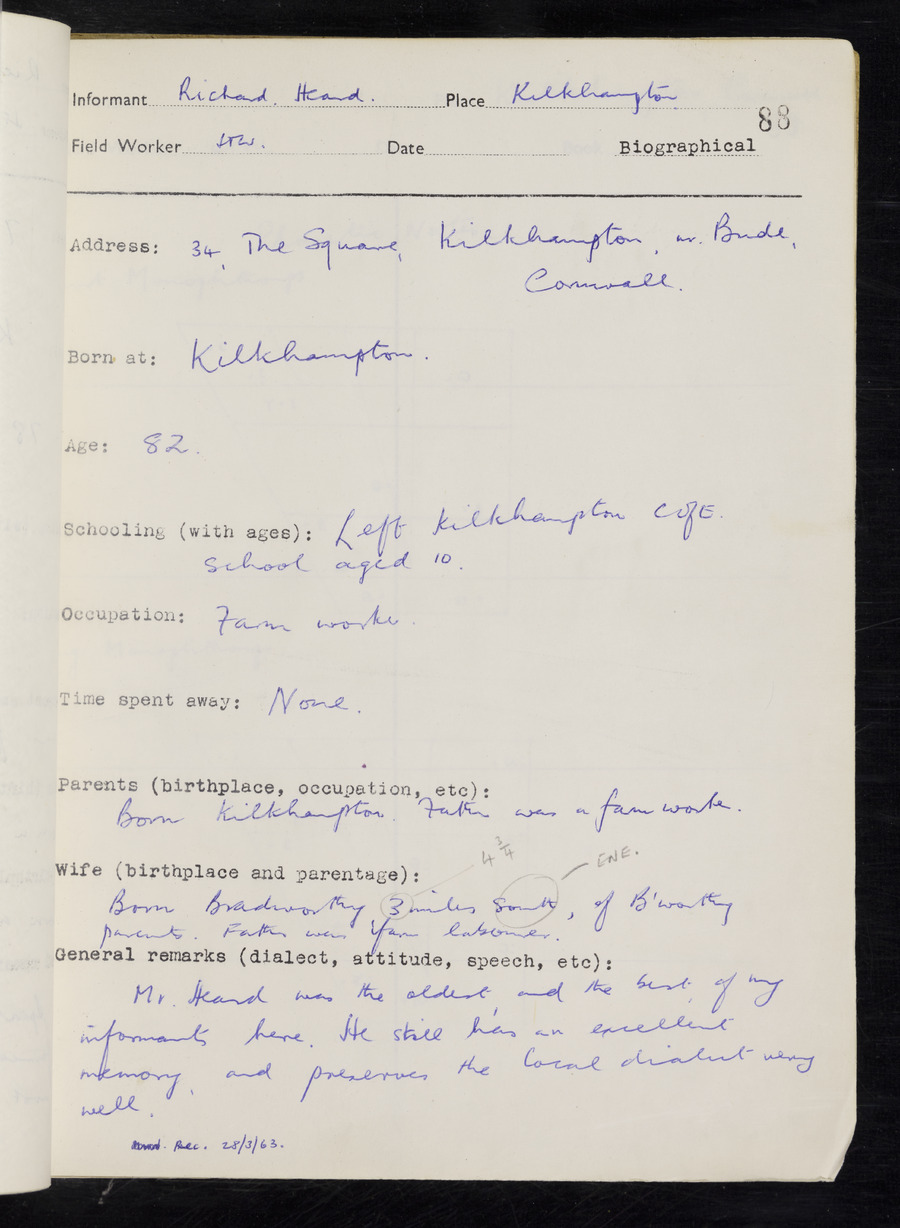 Informant Richard Heard. Place Kilkhampton
88
Field Worker Date Biographical
Address: 34, The Square, Kilkhampton, nr. Bude,
Cornwall.
Born at: Kilkhampton.
Age: 82.
Schooling (with ages): Left Kilkhampton C of E.
school aged 10.
Occupation: Farm worker.
Time spent away: None.
Parents (birthplace, occupation, etc):
Born Kilkhampton. Father was a farm worker.
4 3/4 ENE.
Wife (birthplace and parentage):
Born Bradworthy 3 miles South, of B'worthy
parents. Father was farm labourer.
General remarks (dialect, attitude, speech, etc):
Mr. Heard was the oldest, and the best, of my
informants here. He still has an excellent
memory, and preserves the local dialect very
well.
Rec. 28/3/63.